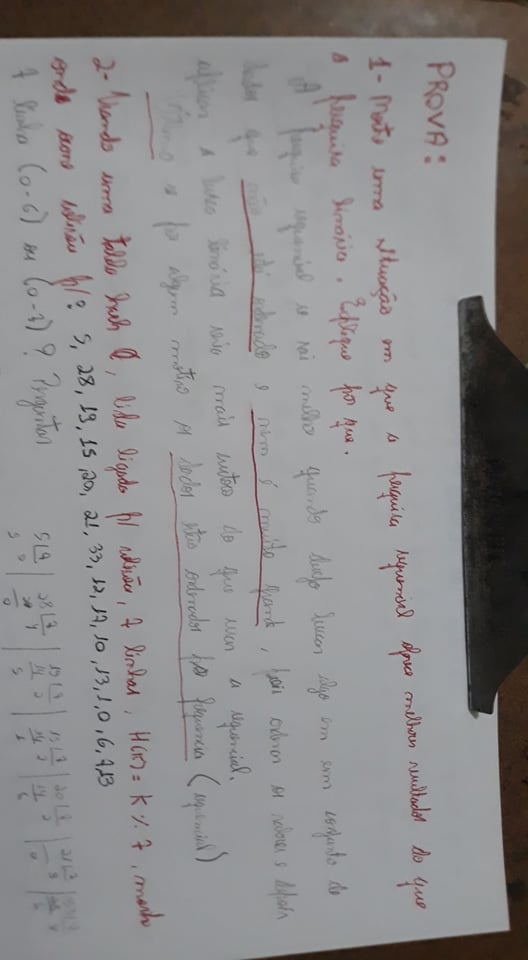 PROVA:
1- Mostre uma situação em que a pesquisa sequencial oferece melhores resultados do que
a pesquisa binária. Explique por que.
A pesquisa sequencial se sai melhor quando desejo buscar algo em um conjunto de
dados que não está ordenado e nem é muito grande, pois ordenar os valores e depois
aplicar a busca binária seria mais custoso do que usar a sequencial.
Ótimo se por algum motivo os dados estão ordenados por frequencia (sequencial)
2- Usando uma tabela hash, lista ligada p/ colisão, 7 linhas, H(K) = K % 7, mostre
onde ocorre colisão p/: 5, 28, 19, 15, 20, 21, 33, 12, 17, 10, 13, 1, 0, 6, 7, 13
7 linha (0-6) ou (0-7)? Perguntar